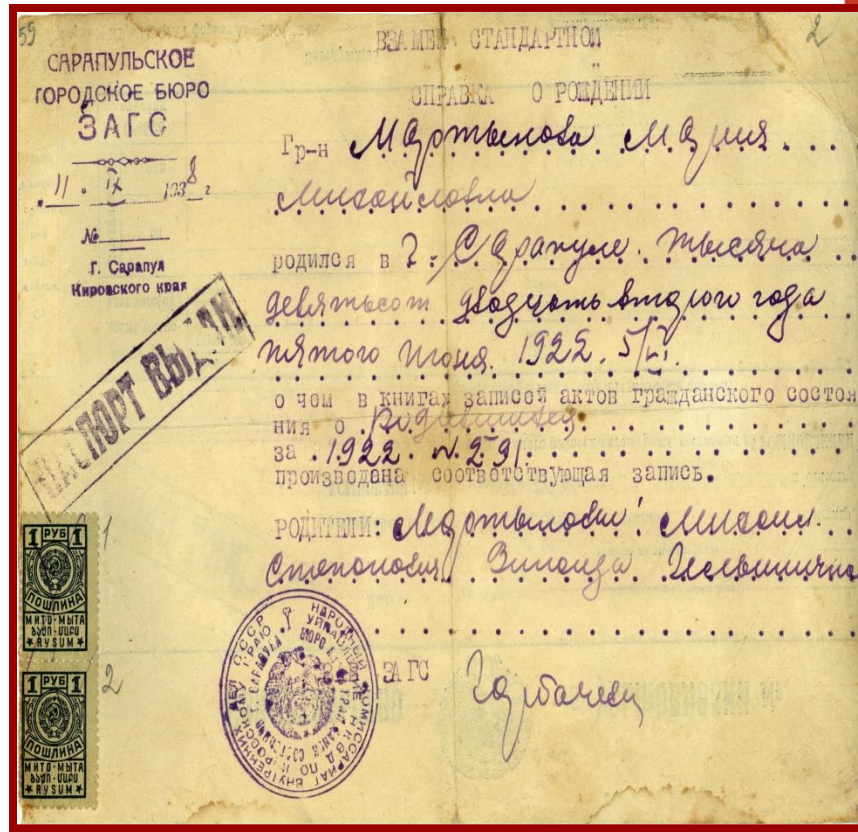 59
2
САРАПУЛЬСКОЕ
ГОРОДСКОЕ БЮРО
ЗАГС
11. IX 1938 г
№
Г. Сарапул
Кировского края
ПАСПОРТ ВЫДАН
ВЗАМЕН СТАНДАРТНОЙ
СПРАВКА О РОЖДЕНИИ
Гр-н Мартынова Мария
Михайловна
родился в г. Сарапуле тысяча
девятьсот двадцать второго года
пятого июня 1922. 5/VI.
о чем в книгах записей актов гражданского состоя
ния о родившихся
за 1922. N. 291.
произведена соответствующая запись.
РОДИТЕЛИ: Мартыновы: Михаил
Степанович Зинаида
ЗАГС
1 РУБ 1
ПОШЛИНА
МИТО-МЫТА
★RYSUM★
1.
1 РУБ 1
ПОШЛИНА
МИТО-МЫТА
★RYSUM★
2
НАРОДНЫЙ КОМИССАРИАТ ВНУТРЕННИХ ДЕЛ СССР
УПРАВЛЕНИЕ НКВД ПО КИРОВСКОМУ КРАЮ